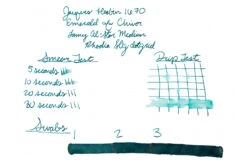 Jacques Herbin 1670
Emerald of Chivor
Lamy Al-Star Medium
Rhodia Slg dotgrid
Smear Test
Drip Test
5 seconds
10 seconds
20 seconds
30 seconds
Swabs
1 2 3